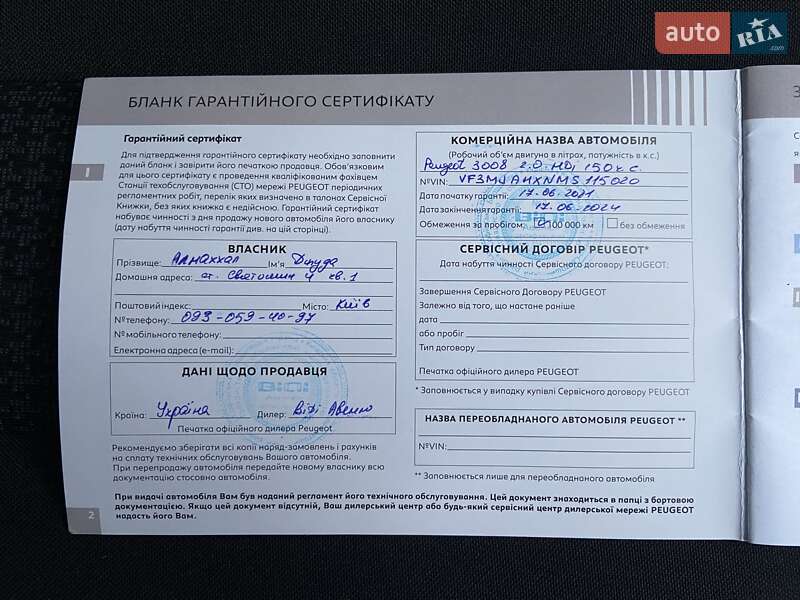 auto RIA .com
БЛАНК ГАРАНТІЙНОГО СЕРТИФІКАТУ
1
Гарантійний сертифікат
Для підтвердження гарантійного сертифікату необхідно заповнити
даний бланк і завірити його печаткою продавця. Обов'язковим
для цього сертифікату є проведення кваліфікованим фахівцем
Станції техобслуговування (СТО) мережі PEUGEOT періодичних
регламентних робіт, перелік яких визначено в талонах Сервісної
Книжки, без яких книжка є недійсною. Гарантійний сертифікат
набуває чинності з дня продажу нового автомобіля його власнику
(дату набуття чинності гарантії див. на цій сторінці).
ВЛАСНИК
Прізвище: Алмаххал Ім'я Джуда
Домашня адреса: ст. Святошин 4 кв. 1
Поштовий індекс: Місто: Київ
№ телефону: 093-059-40-97
№ мобільного телефону:
Електронна адреса (e-mail):
ДАНІ ЩОДО ПРОДАВЦЯ
Країна: Україна Дилер: Віді Авеню
Печатка офіційного дилера Peugeot
Рекомендуємо зберігати всі копії наряд-замовлень і рахунків
на сплату технічного обслуговування Вашого автомобіля.
При перепродажу автомобіля передайте новому власнику всю
документацію стосовно автомобіля.
КОМЕРЦІЙНА НАЗВА АВТОМОБІЛЯ
(Робочий об'єм двигуна в літрах, патужність в к.с.)
Peugeot 3008 2.0 HDi 150 к.с.
№VIN: VF3MJAHXNMS115020
Дата початку гарантії: 17.06.2021
Дата закінчення гарантії: 17.06.2024
Обмеження за пробігом: 100 000 км без обмеження
СЕРВІСНИЙ ДОГОВІР PEUGEOT*
Дата набуття чинності Сервісного договору PEUGEOT:
Завершення Сервісного Договору PEUGEOT
Залежно від того, що настане раніше
дата
або пробіг
Тип договору
Печатка офіційного дилера PEUGEOT
* Заповнюється у випадку купівлі Сервісного договору PEUGEOT
НАЗВА ПЕРЕОБЛАДНАНОГО АВТОМОБІЛЯ PEUGEOT **
№VIN:
** Заповнюється лише для переобладнаного автомобіля
При видачі автомобіля Вам був наданий регламент його технічного обслуговування. Цей документ знаходиться в папці з бортовою
документацією. Якщо цей документ відсутній, Ваш дилерський центр або будь-який сервісний центр дилерської мережі PEUGEOT
надасть його Вам.
2